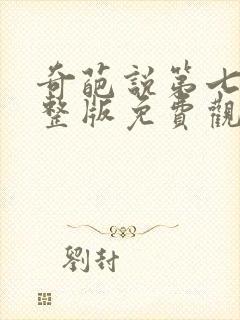 奇葩說第七
整版免費觀
劉封